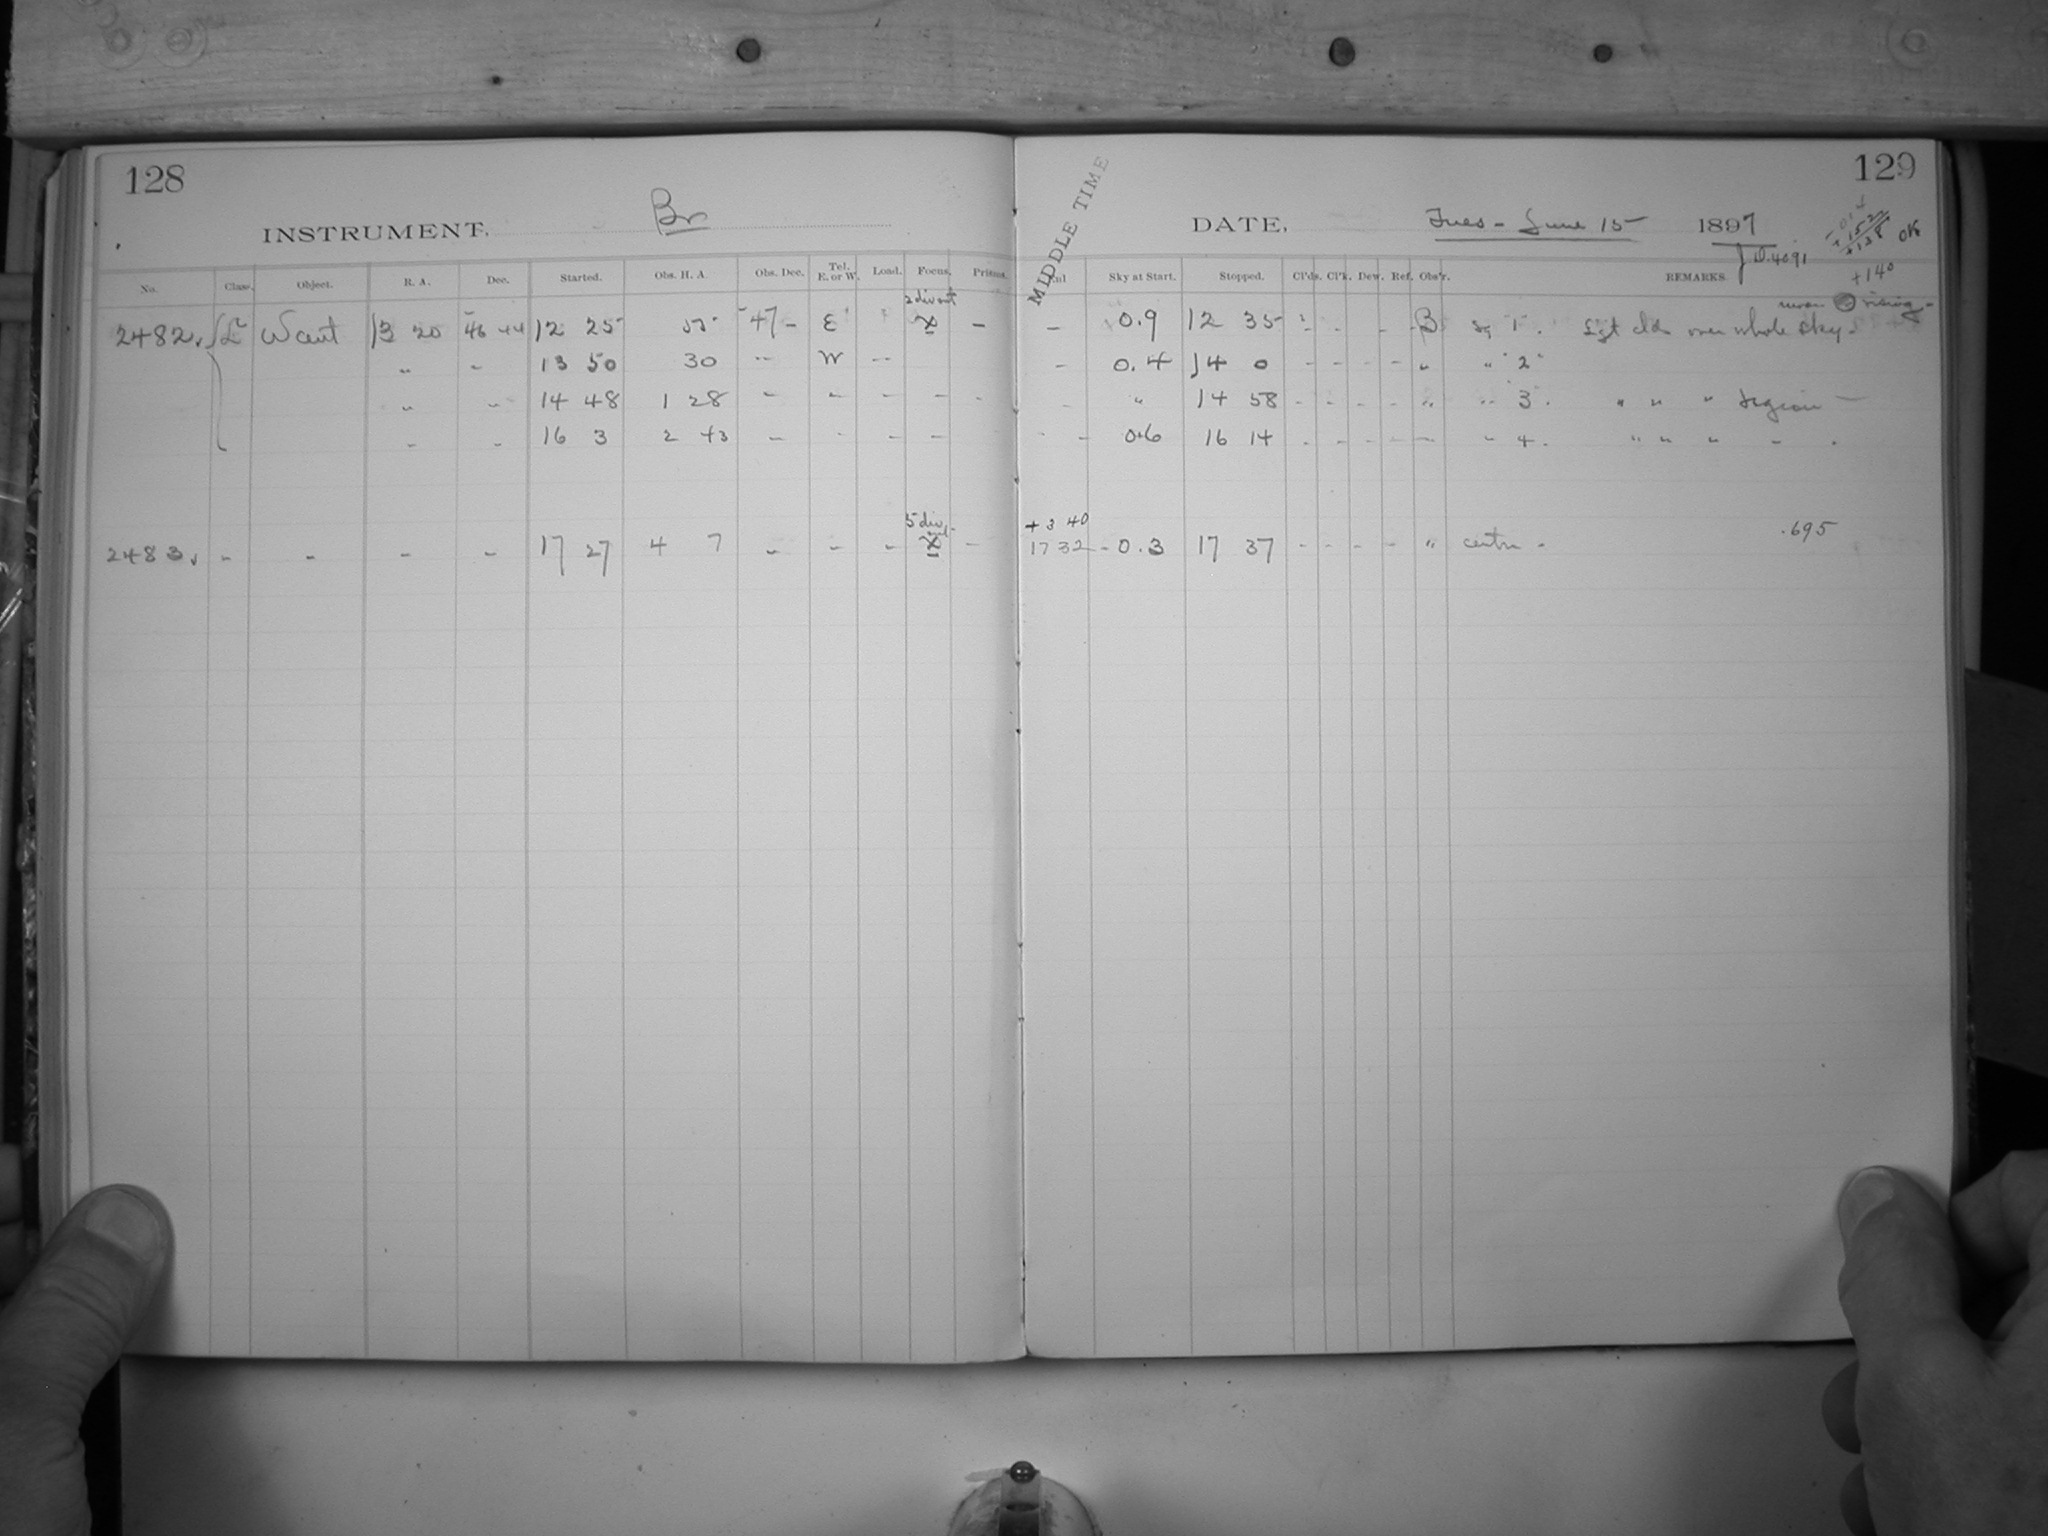 128
INSTRUMENT. Br
No. Class. Object. R. A. Dec. Started. Obs. H. A. Obs. Dec. Tel. E. or W. Load. Focus. Prisms.
2 div out
2482. L² W Cent 13 20 -46 44 12 25 55 -47 - E X -
" " 13 50 30 " W --
" " 14 48 1 28 - - - - -
" " 16 3 2 43 - - - -
5 div
2483. - - - - 17 27 4 7 - - - X -
129
MIDDLE TIME
DATE, Tues - June 15 1897
-014
+152
+138 OK
J.D. 4091
+140
Sky at Start. Stopped. Cl'ds. Cl'k. Dew. Ref. Obs'r. REMARKS.
moon rising -
- 0.9 12 35 - - - - B sq 1. Lgt clds over whole sky -
- 0.4 14 0 - - - - " " 2
- " 14 58 - - - - " " 3. " " " region -
- 0.6 16 14 - - - - - " 4. " " " - .
+3 40
17 32 - 0.3 17 37 - - - - " centre - .695